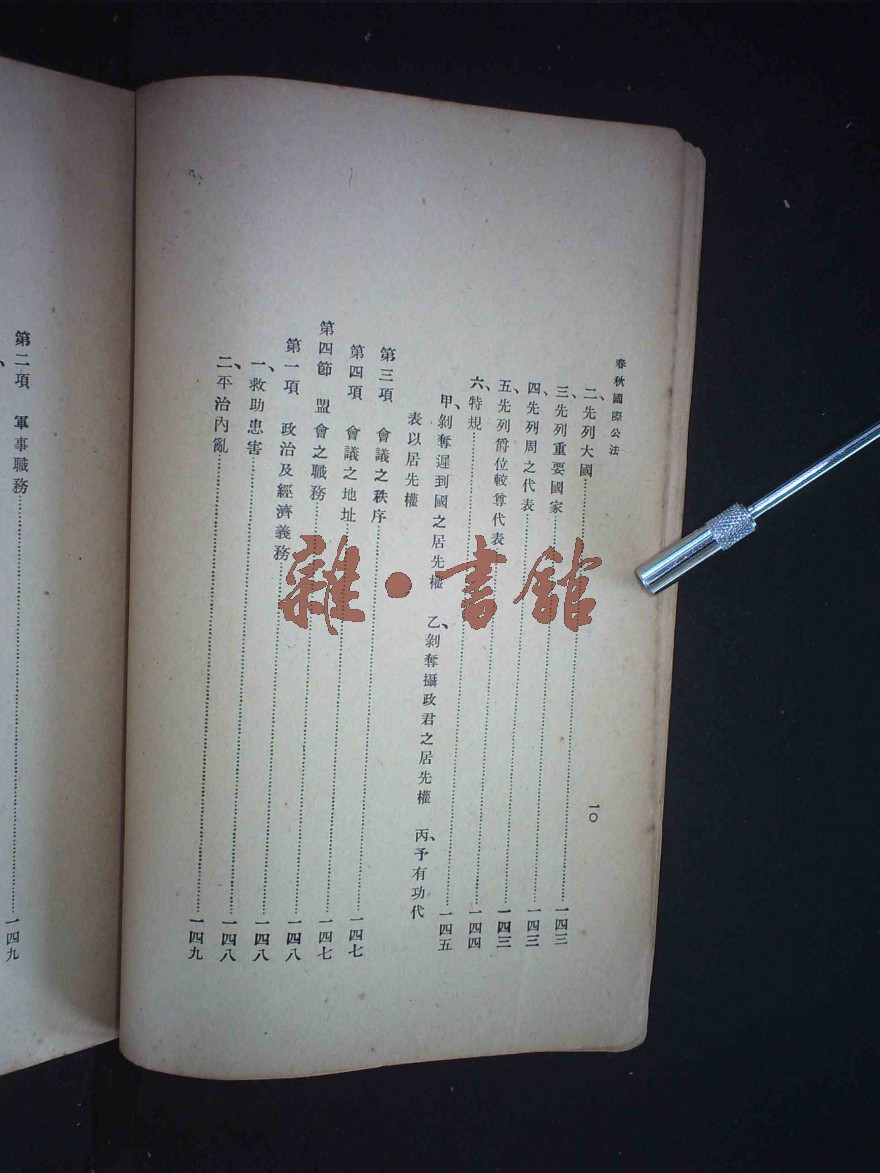 春秋國際公法 一〇
二、先列大國……一四三
三、先列重要國家……一四三
四、先列周之代表……一四三
五、先列爵位較尊代表……一四四
六、特規……一四五
甲、剝奪遲到國之居先權 乙、剝奪攝政君之居先權 丙、予有功代
表以居先權
第三項 會議之秩序……一四七
第四項 會議之地址……一四七
第四節 盟會之職務……一四八
第一項 政治及經濟義務……一四八
一、救助患害……一四八
二、平治內亂……一四九
第二項 軍事職務……一四九
雜·書館